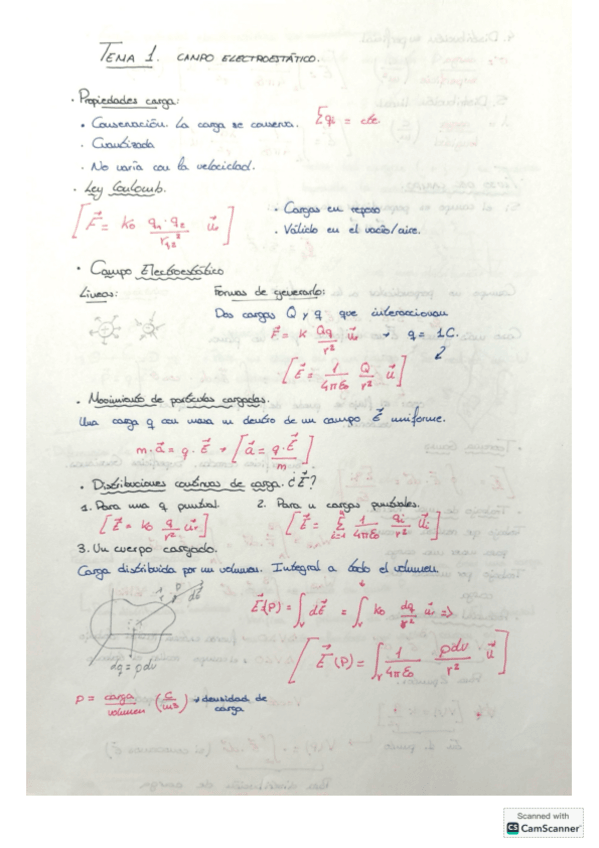 TEMA 1. CAMPO ELECTROESTÁTICO.
• Propiedades carga:
• Conservación. La carga se conserva. Σqi = cte
• Cuantizada
• No varía con la velocidad.
• Ley Coulomb.
[F⃗ = K₀ q₁·q₂/r₁₂² u⃗r]
• Cargas en reposo
• Válido en el vacío/aire.
• Campo Electroestático
Líneas: Formas de generarlo:
Dos cargas Q y q que interaccionan
F⃗ = K Qq/r² u⃗r → q = 1C.
[E⃗ = 1/4πε₀ Q/r² · u⃗]
• Movimiento de partículas cargadas.
Una carga q con masa m dentro de un campo E⃗ uniforme.
m·a⃗ = q·E⃗ → [a⃗ = q·E⃗/m]
• Distribuciones continuas de carga. ¿E⃗?
1. Para una q puntual. 2. Para n cargas puntuales.
[E⃗ = K₀ q/r² u⃗r] [E⃗ = Σi=1 n 1/4πε₀ qi/r² u⃗i]
3. Un cuerpo cargado.
Carga distribuida por un volumen. Integral a todo el volumen
E⃗(P) = ∫v dE⃗ = ∫v K₀ dq/r² u⃗r =>
P dE⃗
[E⃗(P) = ∫v 1/4πε₀ ρdv/r² · u⃗]
dq = ρdv
ρ = carga/volumen (C/m3) → densidad de carga
Scanned with
CS CamScanner